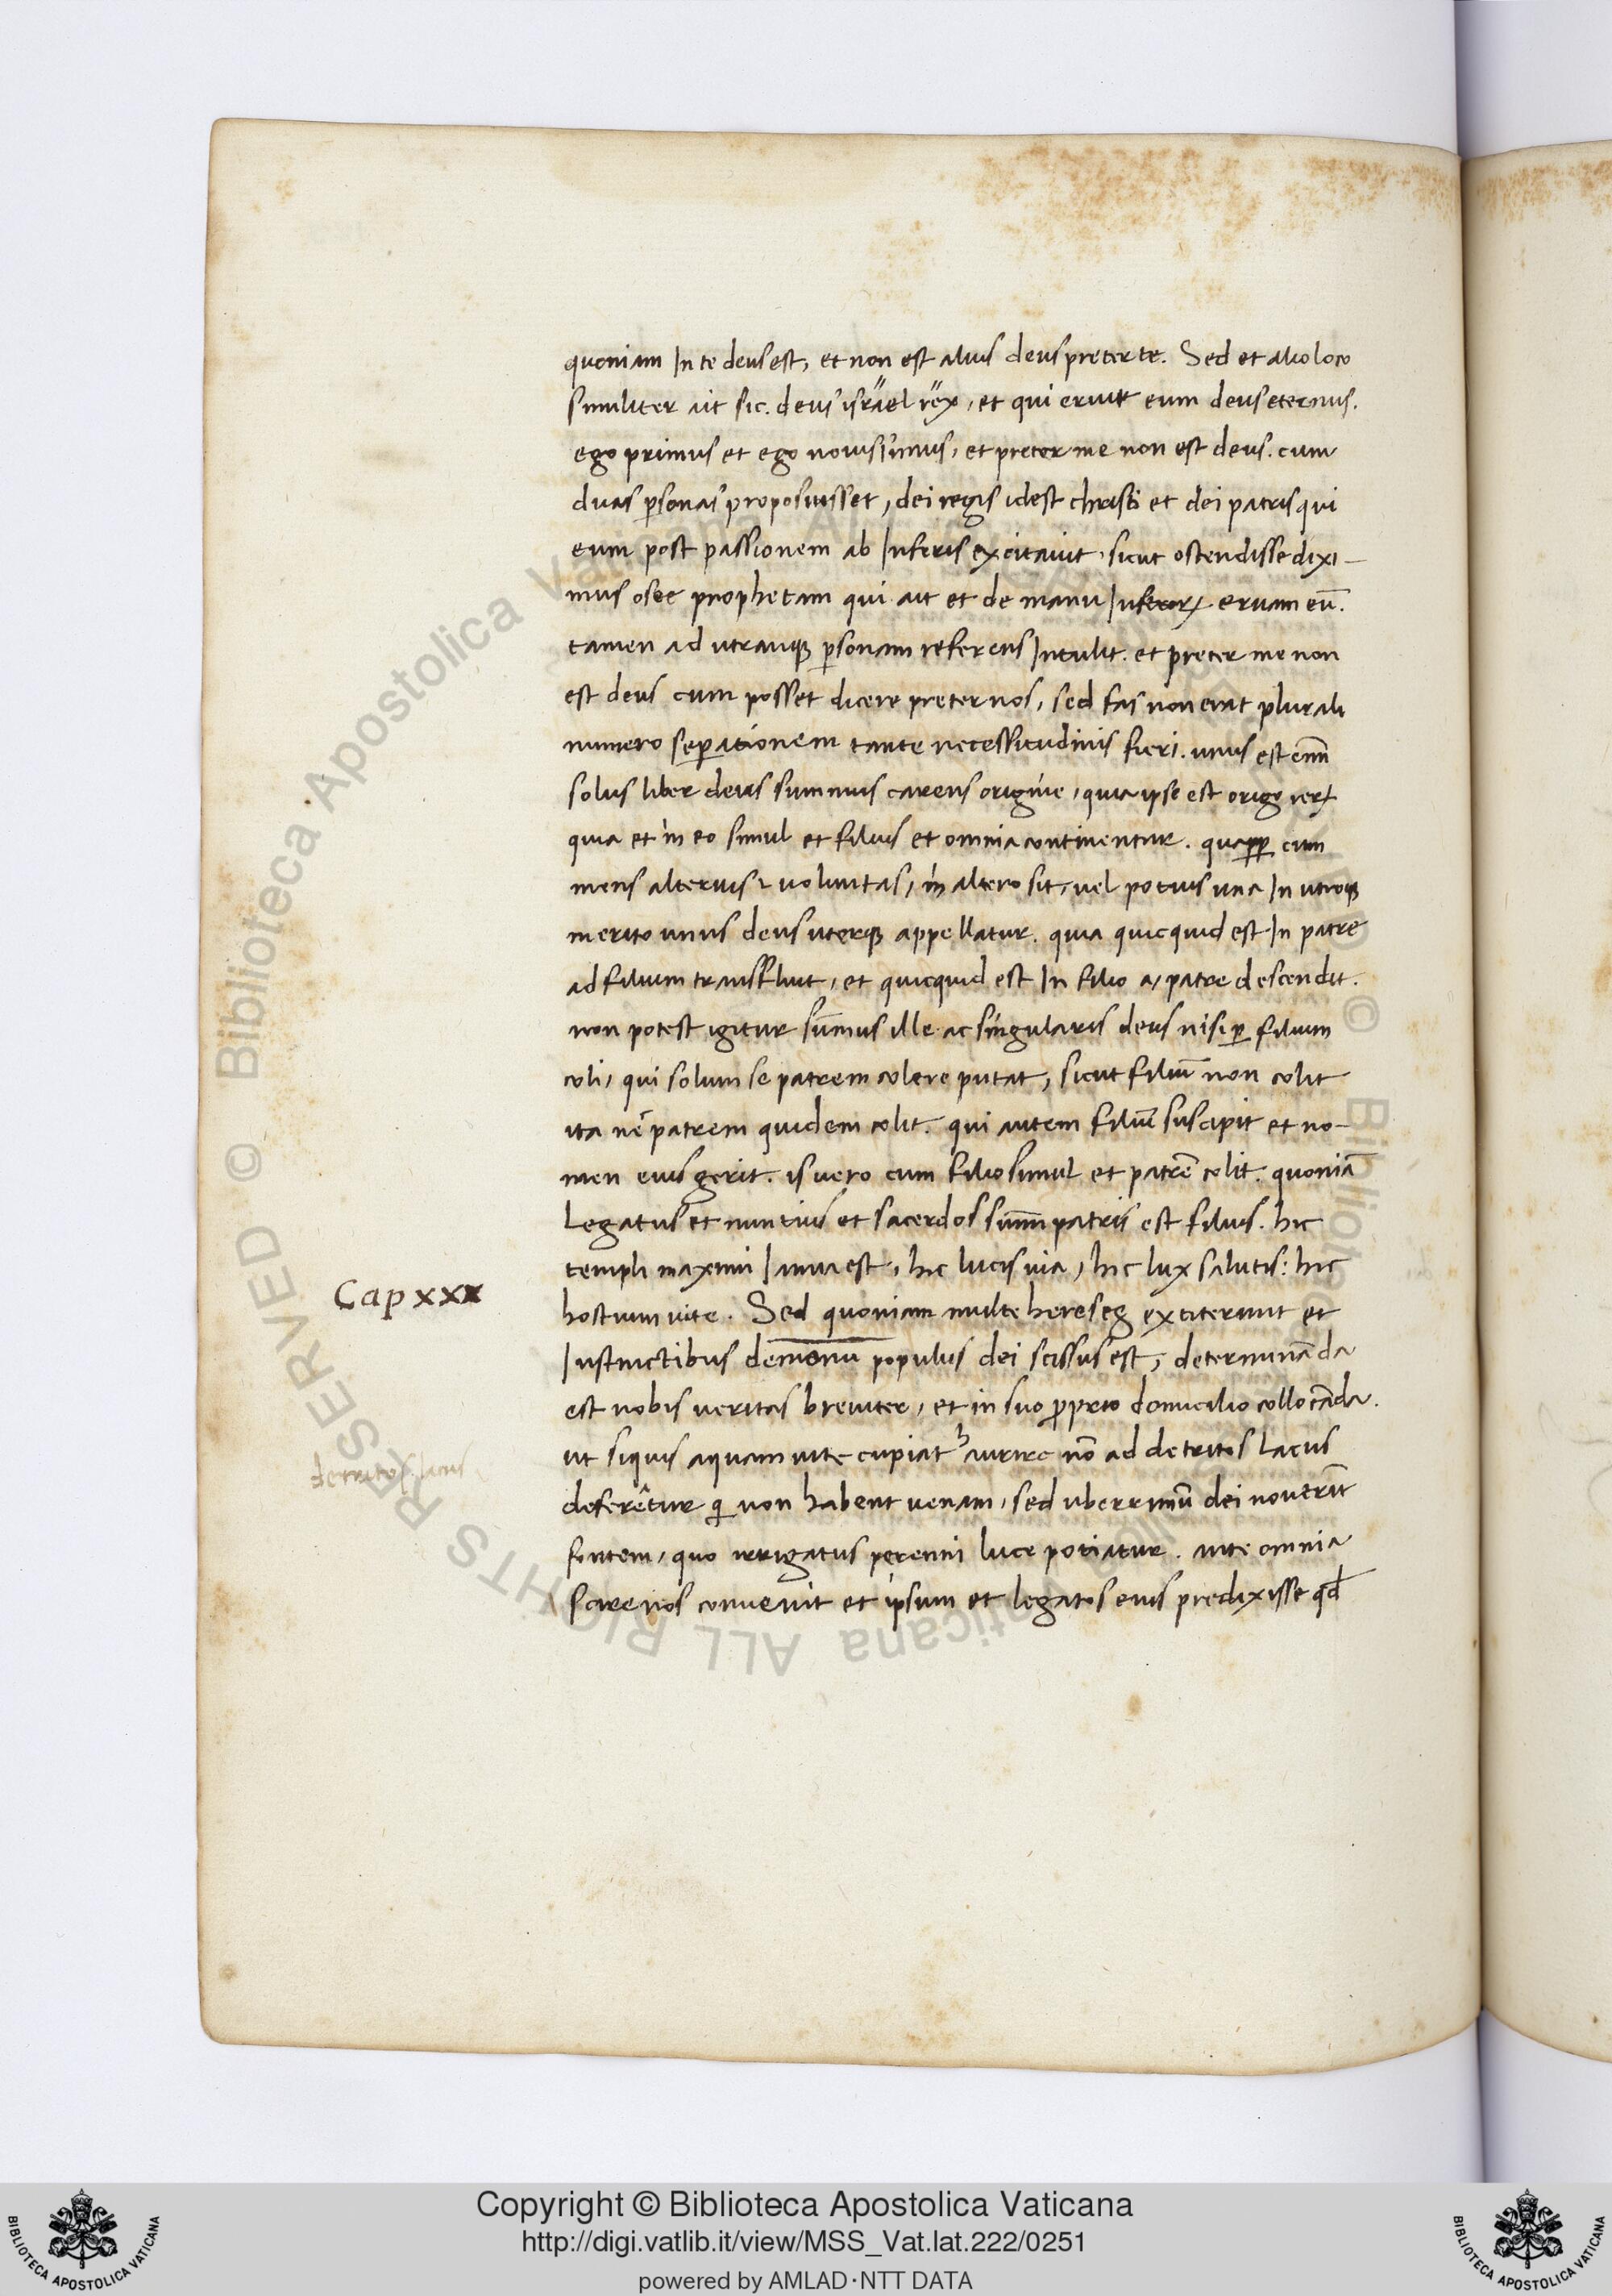 quoniam In te deus est, et non est alius deus preter te. Sed et alio loco
similiter ait sic. deus isräel rëx, et qui eruit eum deus eternus.
ego primus et ego nouissimus, et preter me non est deus. cum
duas psonas proposuisset, dei regis idest christi et dei patris qui
eum post passionem ab Inferis excitauit, sicut ostendisse dixi-
mus osee prophetam qui ait et de manu Inferoꝝ eruam eū.
tamen ad utranqꝫ ꝑsonam referens Intulit. et preter me non
est deus cum posset dicere preter nos, sed fas non erat plurali
numero seꝑationem tante necessitudinis fieri. unus est enī
solus liber deus summus carens origine, quia ipse est origo reꝝ
quia et in eo simul et filius et omnia continentur. quaꝓꝑ cum
mens alterius & uoluntas, in altero sit, uel potius una In utroqꝫ
merito unus deus uterqꝫ appellatur. quia quicquid est In patre
ad filium transfluit, et quicquid est In filio a, patre descendit.
non potest igitur sūmus ille ac singularis deus nisi ꝑ filium
coli, qui solum se patrem colere putat, sicut filiū non colit
ita ne patrem quidem colit. qui autem filiū suscipit et no-
men eius gerit. is uero cum filio simul et patrē colit. quoniā
Legatus et nuntius et sacerdos summi patris est filius. hic
templi maximi Ianua est, hic lucis uia, hic lux salutis: hic
Cap xxx
hostium uite. Sed quoniam multe hereses extiterunt et
Instinctibus demonū populus dei scissus est, determināda
est nobis ueritas breuiter, et in suo ꝓprio domicilio collocāda.
ut siquis aquam uite cupiat haurire nō ad detritos lacus
detritos lacus
deferētur qi non habent uenam, sed uberrimū dei nouerit
fontem, quo irrigatus perenni luce potiatur. ante omnia
scire nos conuenit et ipsum et legatos eius predixisse qđ
© Biblioteca Apostolica Vaticana ALL RIGHTS RESERVED
Copyright © Biblioteca Apostolica Vaticana
http://digi.vatlib.it/view/MSS_Vat.lat.222/0251
powered by AMLAD·NTT DATA
BIBLIOTECA APOSTOLICA VATICANA
BIBLIOTECA APOSTOLICA VATICANA